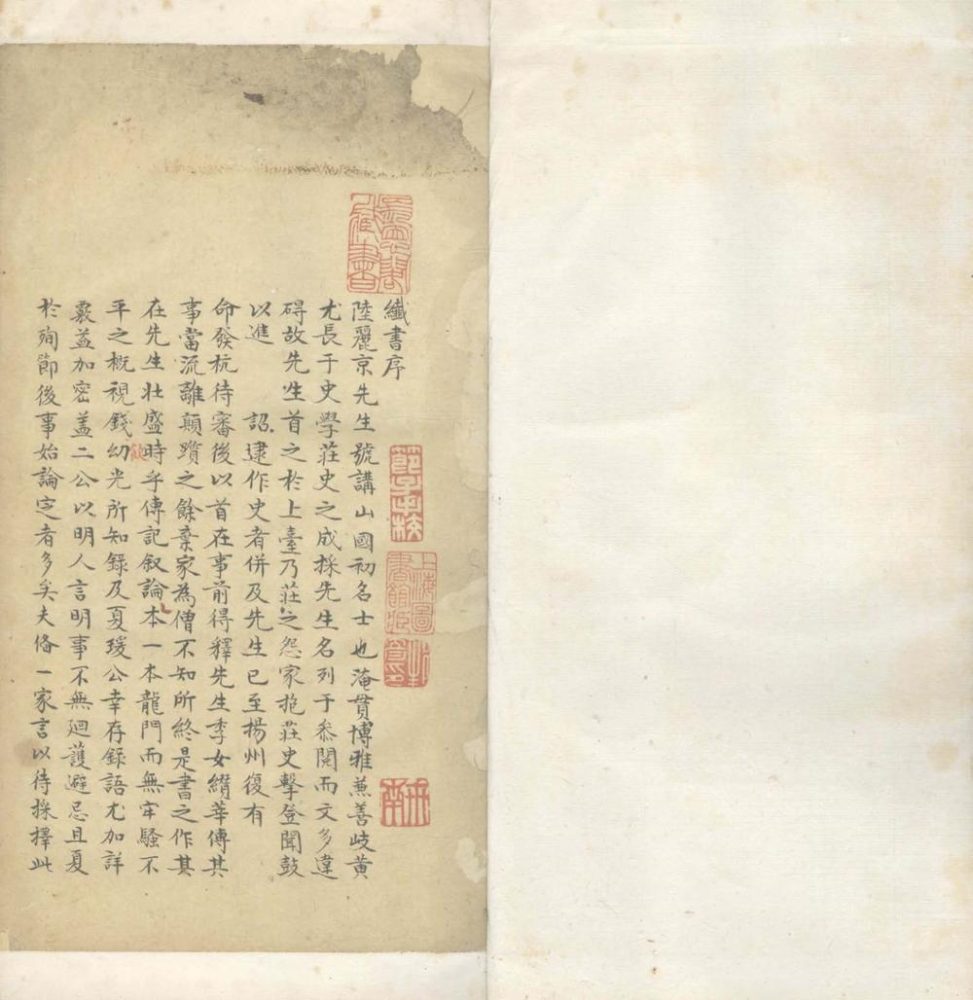 纖書序
陸麗京先生號講山國初名士也淹貫博雅蕪善岐黄
尤長于史學莊史之成採先生名列于叅閱而文多違
碍故先生首之於上臺乃莊之怨家抱莊史擊登聞鼓
以進 詔逮作史者併及先生已至揚州復有
命發杭待審後以首在事前得釋先生季女纘華傳其
事當流離顛躓之餘棄家為僧不知所終是書之作其
在先生壯盛時乎傳記叙論本一本龍門而無牢騷不
平之槪視錢幼光所知録及夏瑗公幸存録語尤加詳
覈益加密盖二公以明人言明事不無廻護避忌且夏
於殉節後事始論定者多矣夫俻一家言以待採擇此
上海圖書館藏